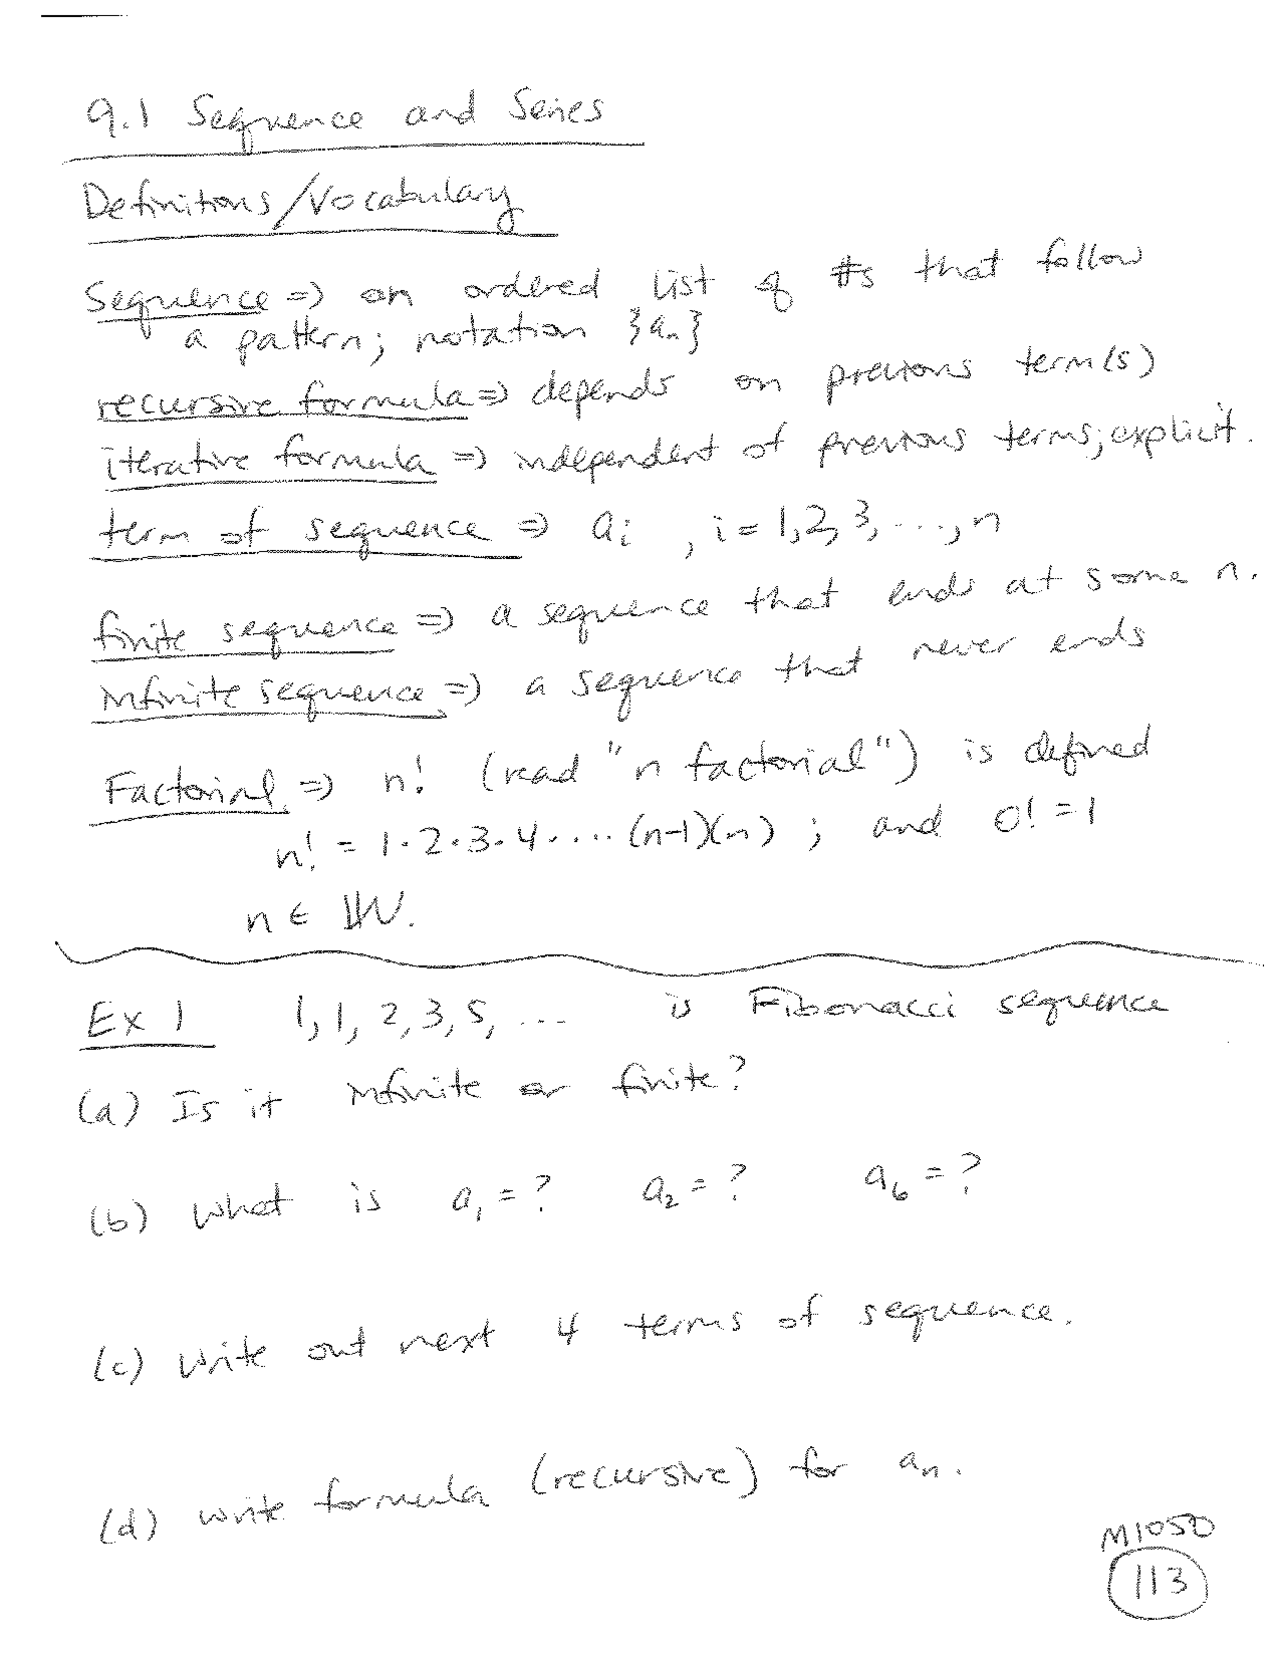 9.1 Sequence and Series
Definitions/Vocabulary
Sequence => an ordered list of #s that follow
a pattern; notation {an}
recursive formula => depends on previous term(s)
iterative formula => independent of previous terms; explicit.
term of sequence => ai , i = 1,2,3,...,n
finite sequence => a sequence that ends at some n.
infinite sequence => a sequence that never ends
Factorial => n! (read "n factorial") is defined
n! = 1·2·3·4·...(n-1)(n) ; and 0! = 1
n ∈ W.
Ex 1 1, 1, 2, 3, 5, ... is Fibonacci sequence
(a) Is it infinite or finite?
(b) What is a₁ = ? a₂ = ? a₆ = ?
(c) Write out next 4 terms of sequence.
(d) Write formula (recursive) for an.
M1050
113